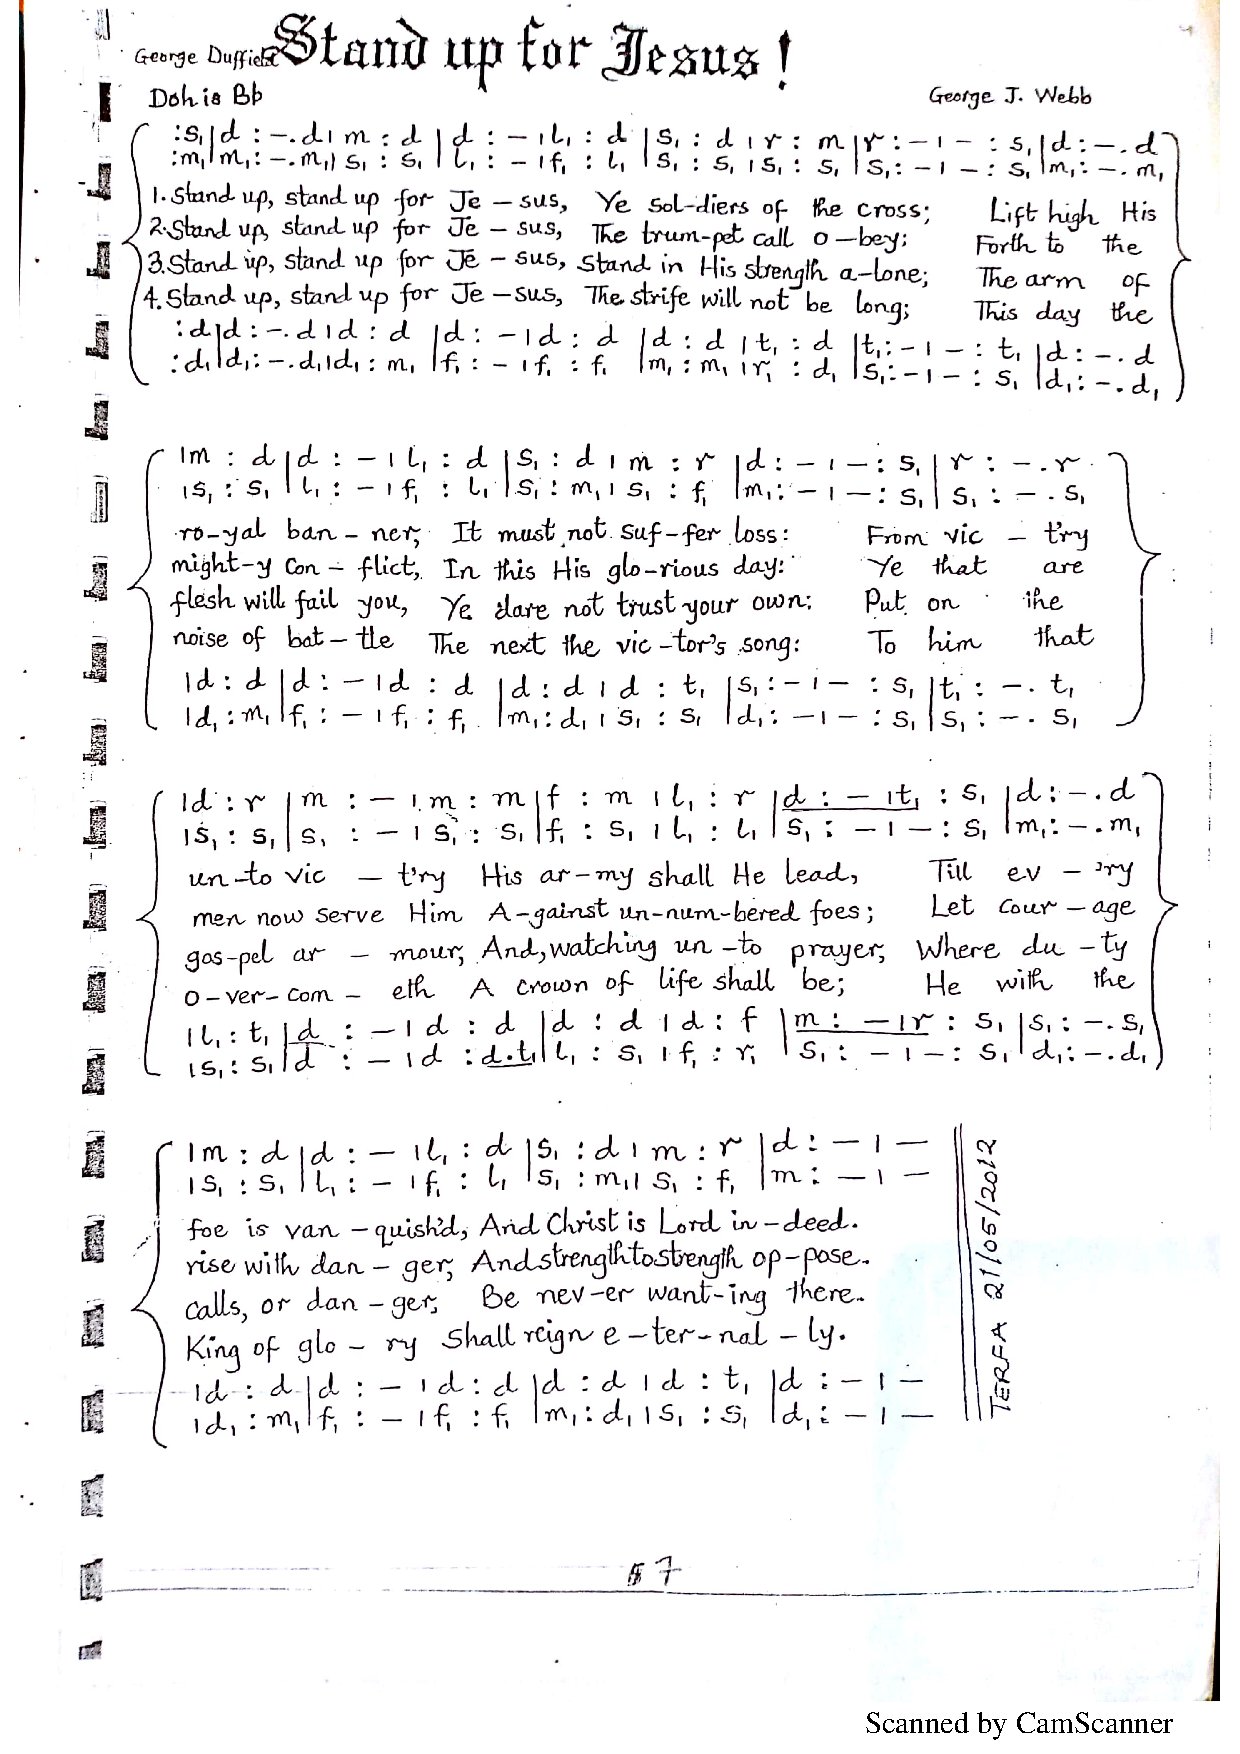 Stand up for Jesus!
George Duffield
Doh is Bb
George J. Webb
:s₁|d :-.d ı m : d |d : - ı l₁ : d |s₁ : d ı r : m |r : - ı - : s₁ |d :-.d
:m₁|m₁ :-.m₁ ı s₁ : s₁ |l₁ : - ı f₁ : l₁ |s₁ : s₁ ı s₁ : s₁ |s₁ : - ı - : s₁ |m₁ :-.m₁
1. Stand up, stand up for Je – sus, Ye sol-diers of the cross; Lift high His
2. Stand up, stand up for Je – sus, The trum-pet call o-bey; Forth to the
3. Stand up, stand up for Je – sus, Stand in His strength a-lone; The arm of
4. Stand up, stand up for Je – sus, The strife will not be long; This day the
:d|d :-.d ı d : d |d : - ı d : d |d : d ı t₁ : d |t₁ : - ı - : t₁ |d :-.d
:d₁|d₁ :-.d₁ ı d₁ : m₁ |f₁ : - ı f₁ : f₁ |m₁ : m₁ ı r₁ : d₁ |s₁ : - ı - : s₁ |d₁ :-.d₁
ı m : d |d : - ı l₁ : d |s₁ : d ı m : r |d : - ı - : s₁ |r : -.r
ı s₁ : s₁ |l₁ : - ı f₁ : l₁ |s₁ : m₁ ı s₁ : f₁ |m₁ : - ı - : s₁ |s₁ : -.s₁
ro-yal ban – ner, It must not suf-fer loss: From vic – t'ry
might-y con – flict, In this His glo-rious day: Ye that are
flesh will fail you, Ye dare not trust your own: Put on the
noise of bat – tle The next the vic-tor's song: To him that
ı d : d |d : - ı d : d |d : d ı d : t₁ |s₁ : - ı - : s₁ |t₁ : -.t₁
ı d₁ : m₁ |f₁ : - ı f₁ : f₁ |m₁ : d₁ ı s₁ : s₁ |d₁ : - ı - : s₁ |s₁ : -.s₁
ı d : r |m : - ı m : m |f : m ı l₁ : r |d : - ı t₁ : s₁ |d :-.d
ı s₁ : s₁ |s₁ : - ı s₁ : s₁ |f₁ : s₁ ı l₁ : l₁ |s₁ : - ı - : s₁ |m₁ :-.m₁
un-to vic – t'ry His ar-my shall He lead, Till ev – 'ry
men now serve Him A-gainst un-num-bered foes; Let cour-age
gos-pel ar – mour, And, watching un-to prayer, Where du-ty
o-ver-com – eth A crown of life shall be; He with the
ı l₁ : t₁ |d : - ı d : d |d : d ı d : f |m : - ı r : s₁ |s₁ :-.s₁
ı s₁ : s₁ |d : - ı d : d.t₁ |l₁ : s₁ ı f₁ : r₁ |s₁ : - ı - : s₁ |d₁ :-.d₁
ı m : d |d : - ı l₁ : d |s₁ : d ı m : r |d : - ı -
ı s₁ : s₁ |l₁ : - ı f₁ : l₁ |s₁ : m₁ ı s₁ : f₁ |m : - ı -
foe is van – quish'd, And Christ is Lord in-deed.
rise with dan – ger, And strength to strength op-pose.
calls, or dan – ger, Be nev-er want-ing there.
King of glo – ry Shall reign e-ter-nal-ly.
ı d : d |d : - ı d : d |d : d ı d : t₁ |d : - ı -
ı d₁ : m₁ |f₁ : - ı f₁ : f₁ |m₁ : d₁ ı s₁ : s₁ |d₁ : - ı -
TERFA 21/05/2012
7
Scanned by CamScanner